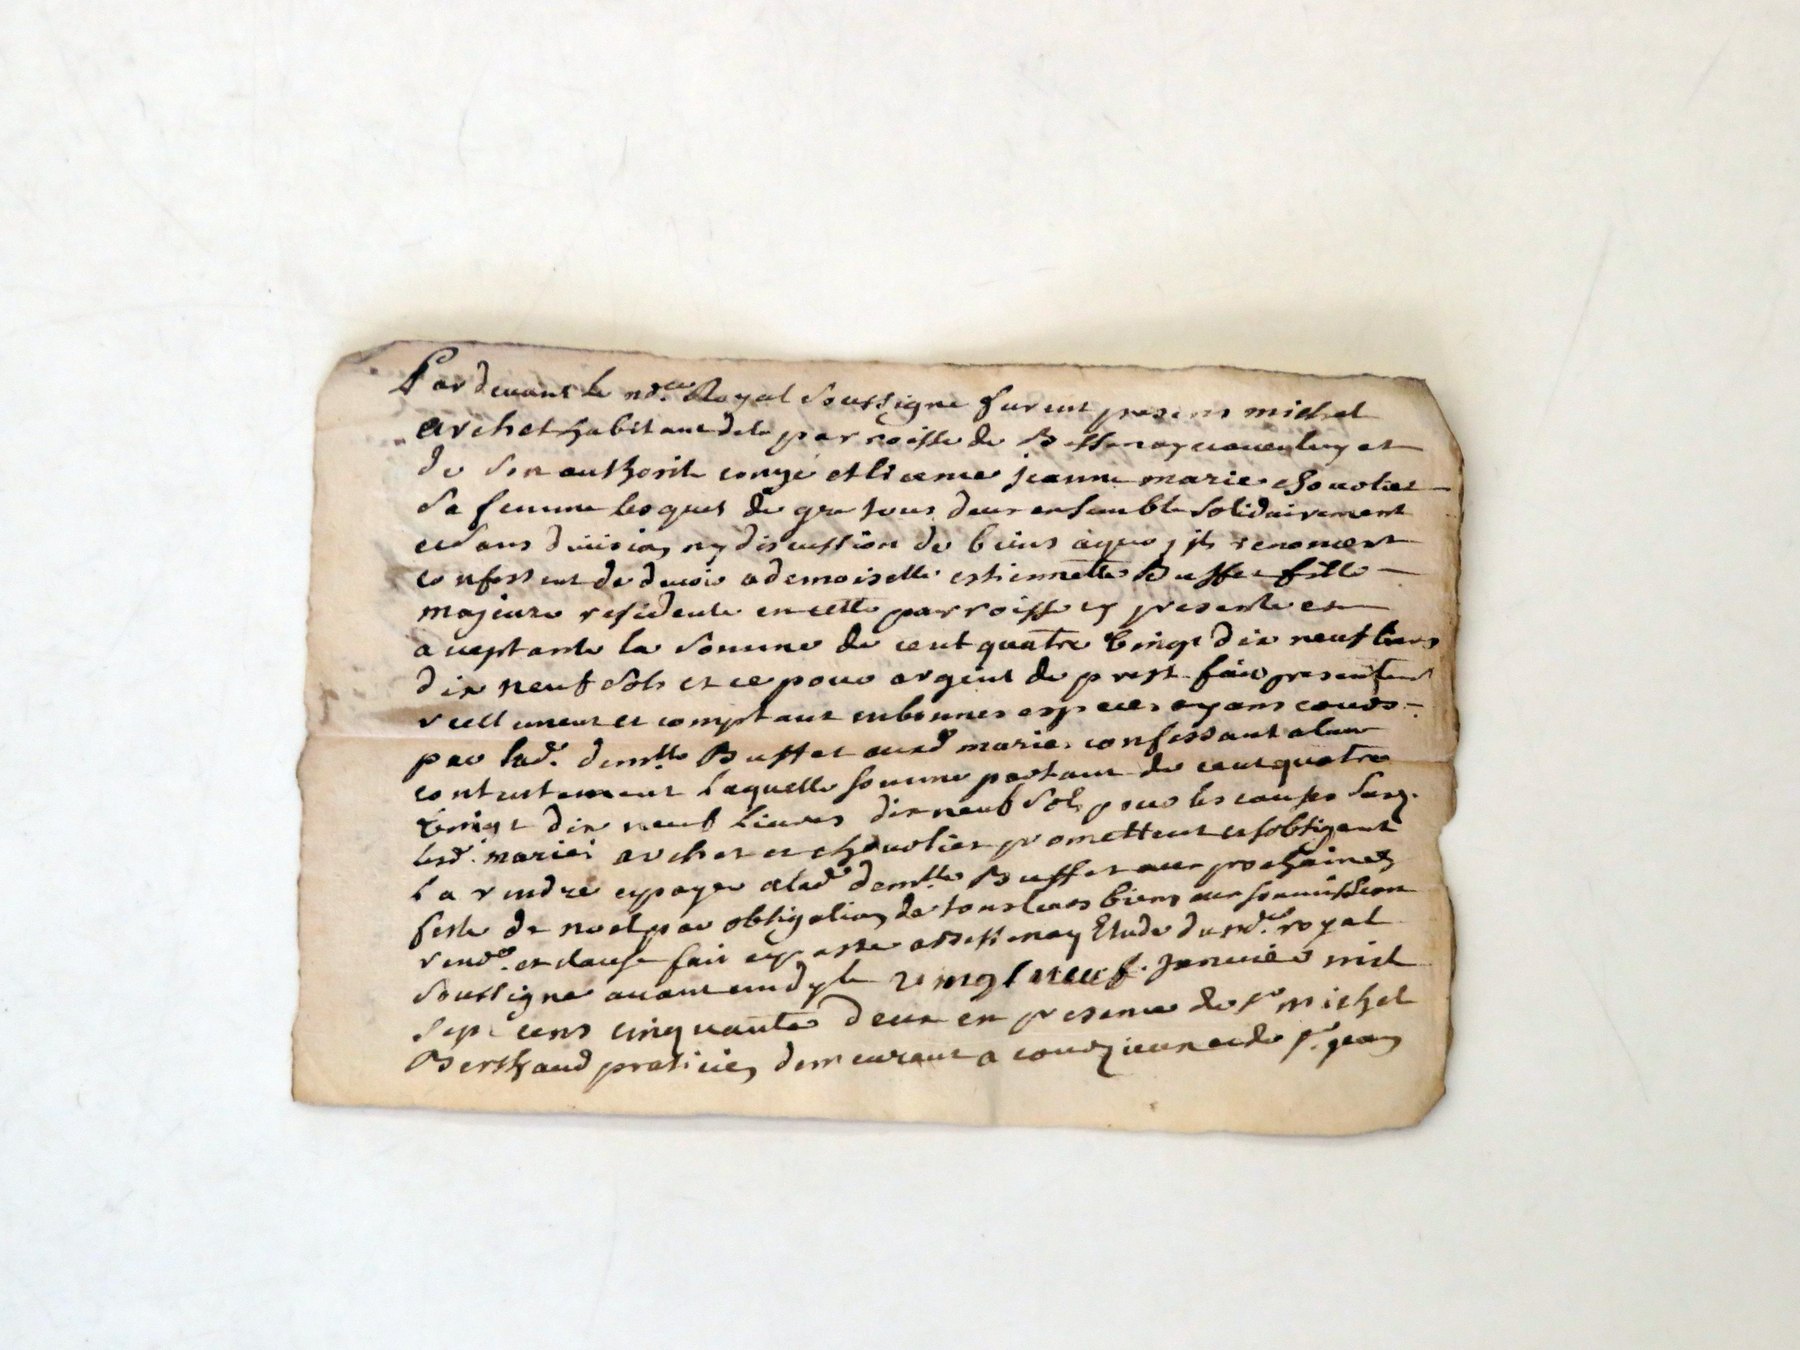 Par devant le no.re Royal soussigné furent presens michel
archet habitant dela parroisse de Bessenay et
de son authorité congé et licence jeanne marie chavolier
sa femme lesquels de gre tous deux ensemble solidairement
et sans division ny discussion de biens a quoy ils renoncent
confessent de devoir a demoiselle estiennette Buffet fille
majeure residente en cette parroisse cy presente et
aceptante la somme de cent quatre vingt dix neuf livres
dix neuf sols et ce pour argent de prest fait presentement
reellement et comptant en bonnes especes ayans cours
par lad.e dem.lle Buffet ausd mariés confessant a leur
contentement laquelle somme portant de cent quatre
vingt dix neuf livres dix neuf sols pour les causes
lesd. mariés archet et chavolier promettent et sobligent
la rendre et payer a lad.e dem.lle Buffet aux prochaines
feste de noel par obligation de tous leurs biens aux soumission
renon.on et clause fait et passé a Bessenay Etude dud no.re royal
soussigné avant midy le vingt neuf janvier mil
sept cens cinquante deux en presence de s.r michel
Berthaud praticien demeurant a courzieu et de s.r jean